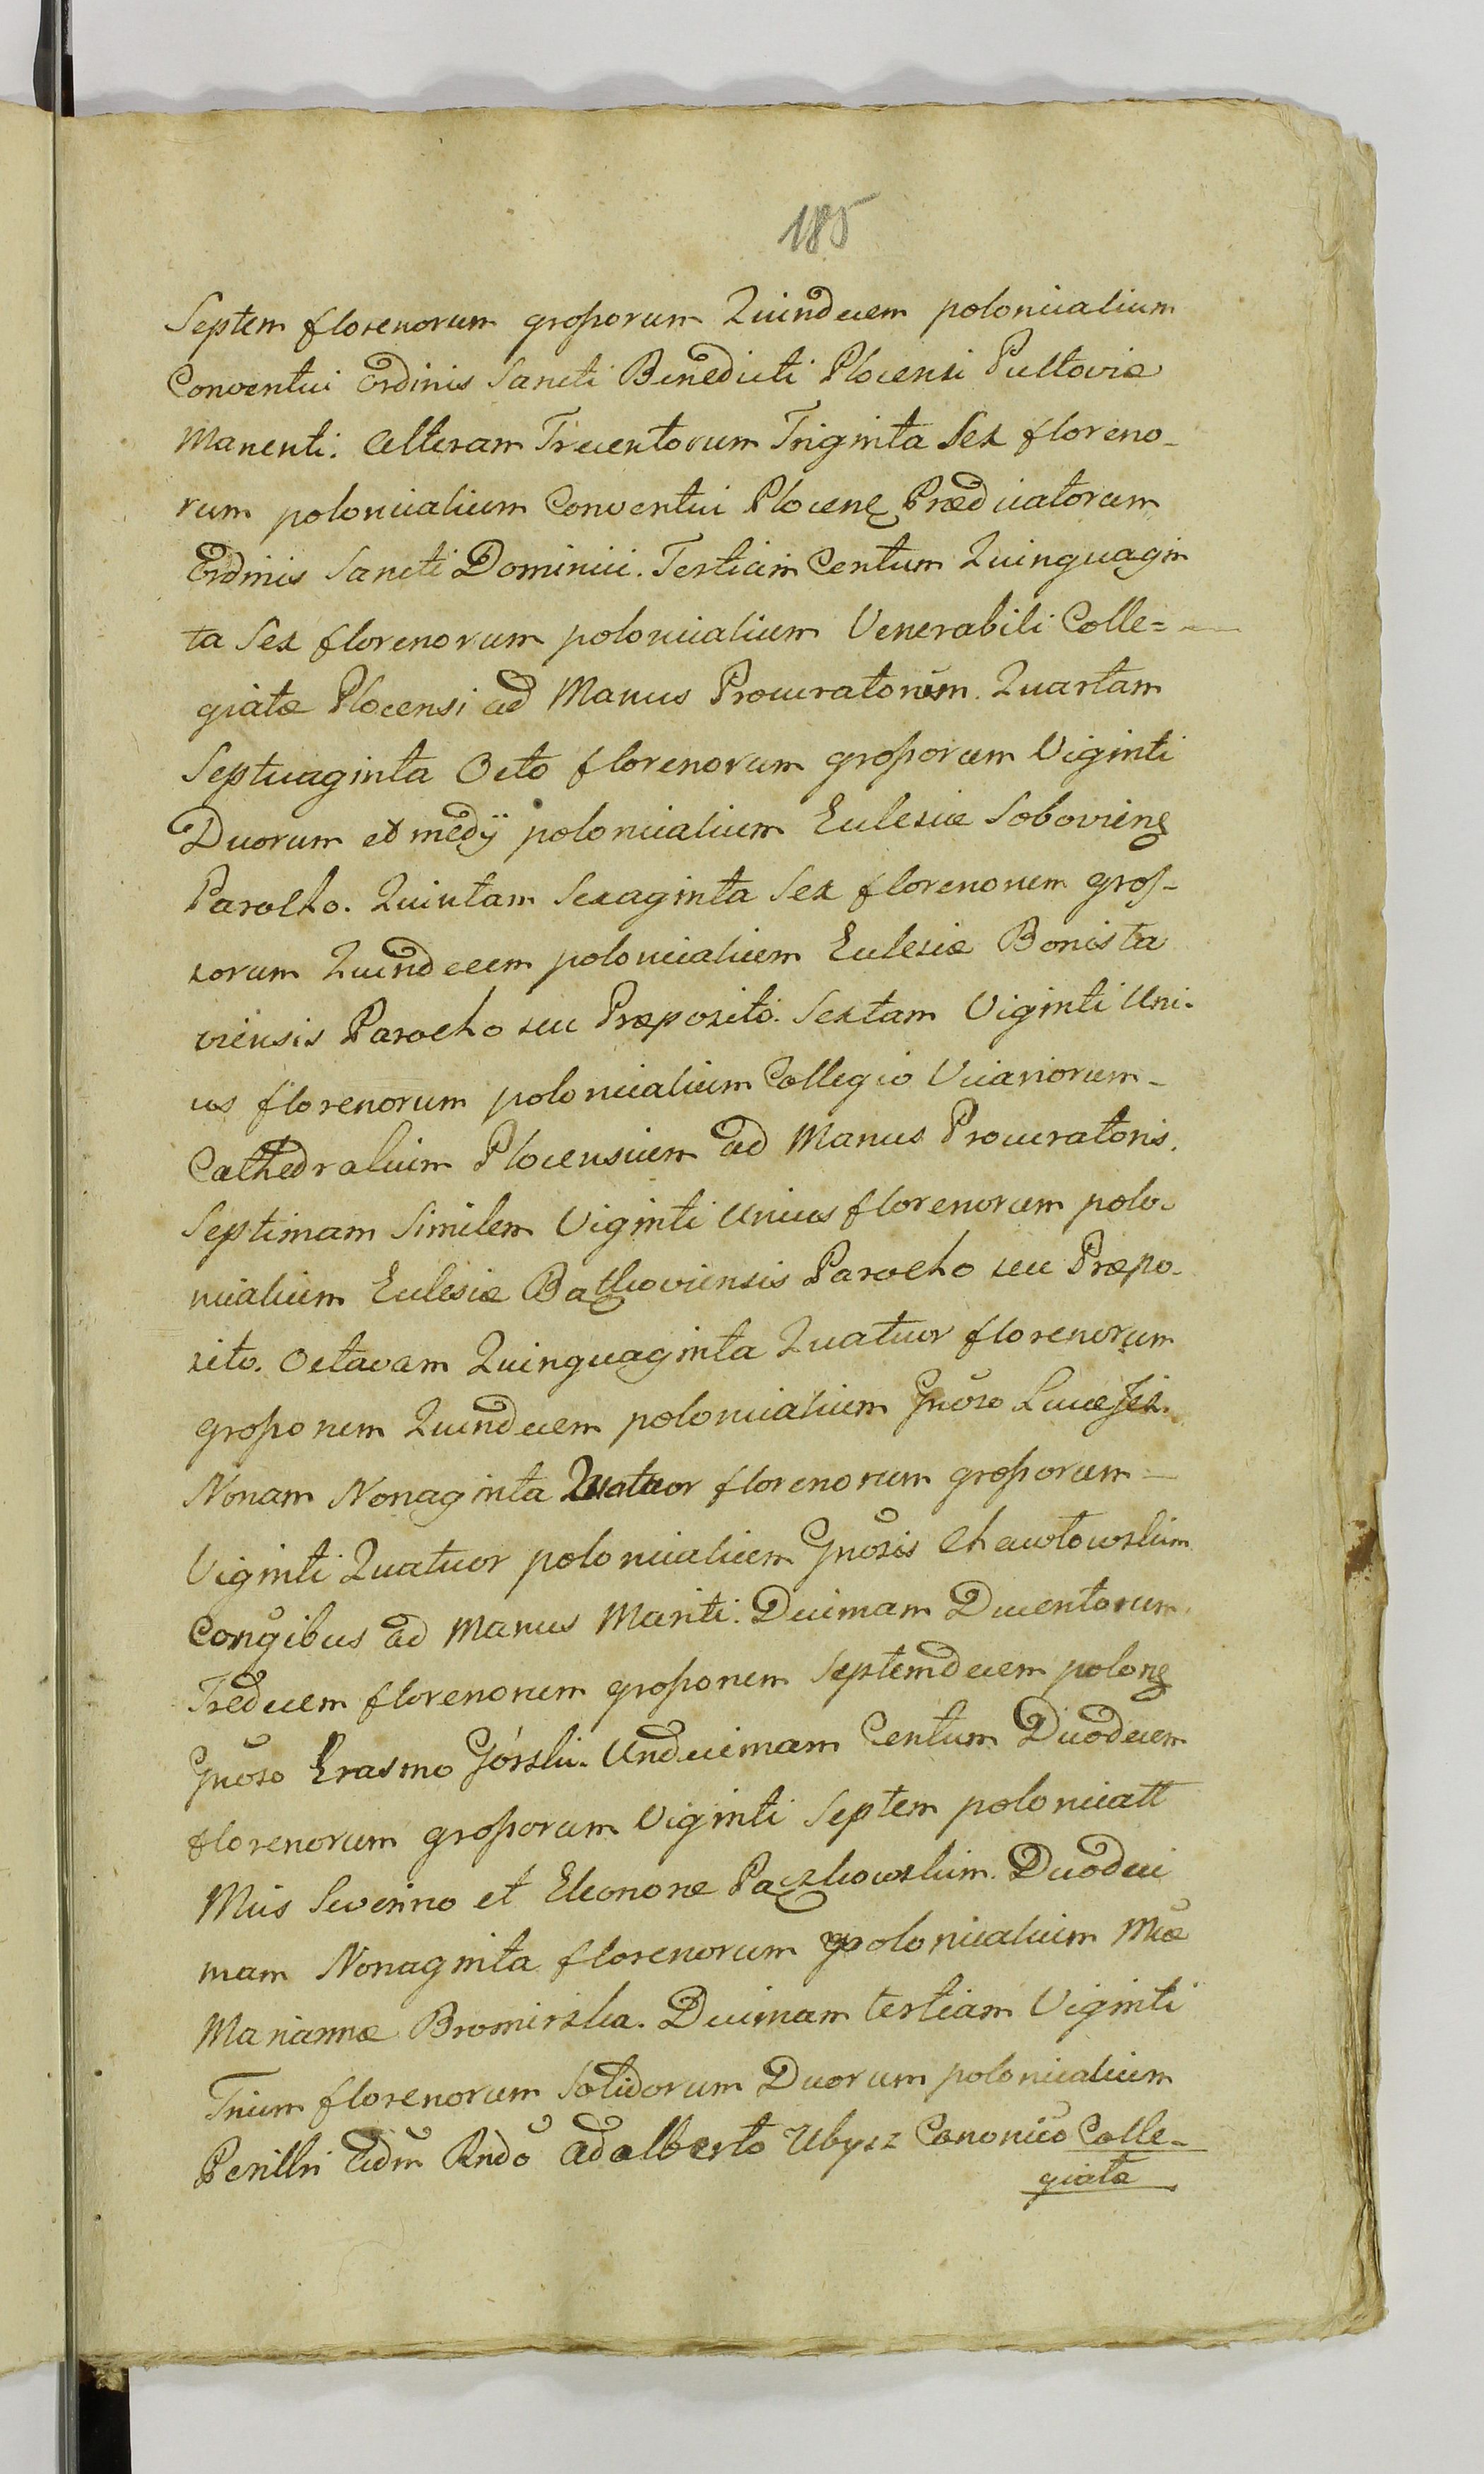 185
Septem florenorum grossorum Quindecem polonicalium
Conventui Ordinis Sancti Benedicti Plocensi Pultoviæ
Manenti. Alteram Trecentorum Triginta Sex floreno-
rum polonicalium Conventui Plocenȩ Prædicatorum
Ordinis Sancti Dominici. Tertiam Centum Quinquagin
ta Sex florenorum polonicalium Venerabili Colle=
giatæ Plocensi ad Manus Procuratorum. Quartam
Septuaginta Octo florenorum grossorum Viginti
Duorum et medij polonicalium Eclesiæ Sobovienȩ
Parocho. Quintam Sexaginta Sex florenorum gros-
sorum Quindecem polonicalium Eclesiæ Bonista
viensis Parocho seu Præposito. Sextam Viginti Uni-
us florenorum polonicalium Collegio Vicariorum-
Cathedralium Plocensium ad Manus Procuratoris.
Septimam Similem Viginti Unius florenorum polo-
nicalium Eclesiæ Bąthoviensis Parocho seu Præpo-
sito. Octavam Quinquaginta Quatuor florenorum
grossorum Quindecem polonicalium Gnoso Lucæ
Nonam Nonaginta Quatuor florenorum grossorum
Viginti Quatuor polonicalium Gnosis Chawtowskim
Conȷugibus ad Manus Mariti. Decimam Ducentorum
Tredecem florenorum grossorum Septemdecem polonȩ
Gnoso Erasmo Górski. Undecimam Centum Duodecem
florenorum grossorum Viginti Septem polonicatt
Mcis Severino et Eleonoræ Pączkowskim. Duodeci
mam Nonaginta florenorum polonicalium Mcæ
Mariannæ Bromirska. Decimam tertiam Viginti
Trium florenorum Solidorum Duorum polonicalium
Perillri Adm Rndo Adalberto Ubysz Canonico Colle-
giatæ